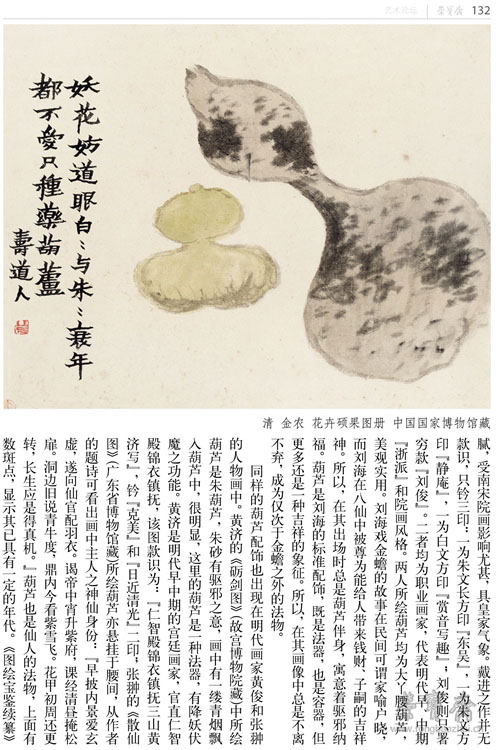 艺术论坛
荣宝斋
132
妖花妨道眼白〻与朱〻衰年
都不爱只種藥葫蘆
壽道人
清 金农 花卉硕果图册 中国国家博物馆藏
腻，受南宋院画影响尤甚，具皇家气象。戴进之作并无
款识，只钤三印：一为朱文长方印『东吴』，一为朱文方
印『静庵』，一为白文方印『赏音写趣』，刘俊则只署
穷款『刘俊』。二者均为职业画家，代表明代早、中期
『浙派』和院画风格。两人所绘葫芦均为大丫腰葫芦，
美观实用。刘海戏金蟾的故事在民间可谓家喻户晓，
而刘海在八仙中被尊为能给人带来钱财、子嗣的吉祥
神。所以，在其出场时总是葫芦伴身，寓意着驱邪纳
福。葫芦是刘海的标准配饰，既是法器，也是容器，但
更多还是一种吉祥的象征。所以，在其画像中总是不离
不弃，成为仅次于金蟾之外的法物。
同样的葫芦配饰也出现在明代画家黄俊和张翀
的人物画中。黄济的《砺剑图》（故宫博物院藏）中所绘
葫芦是朱葫芦，朱砂有驱邪之意，画中有一缕青烟飘
入葫芦中，很明显，这里的葫芦是一种法器，有降妖伏
魔之功能。黄济是明代早中期的宫廷画家，官直仁智
殿锦衣镇抚，该图款识为：『仁智殿锦衣镇抚三山黄
济写』，钤『克美』和『日近清光』二印；张翀的《散仙
图》（广东省博物馆藏）所绘葫芦亦悬挂于腰间，从作者
的题诗可看出画中主人之神仙身份：『早披内景爱玄
虚，遂向仙官配羽衣。谒帝中宵升紫府，课经清昼掩松
扉。洞边旧说青牛度，鼎内今看紫雪飞。花甲初周还更
转，长生应是得真机。』葫芦也是仙人的法物，上面有
数斑点，显示其已具有一定的年代。《图绘宝鉴续纂》